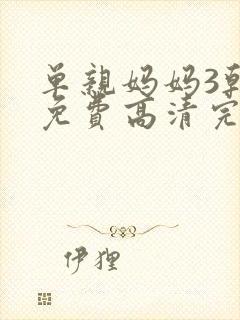 单亲妈妈3韩
免费高清完
伊狸